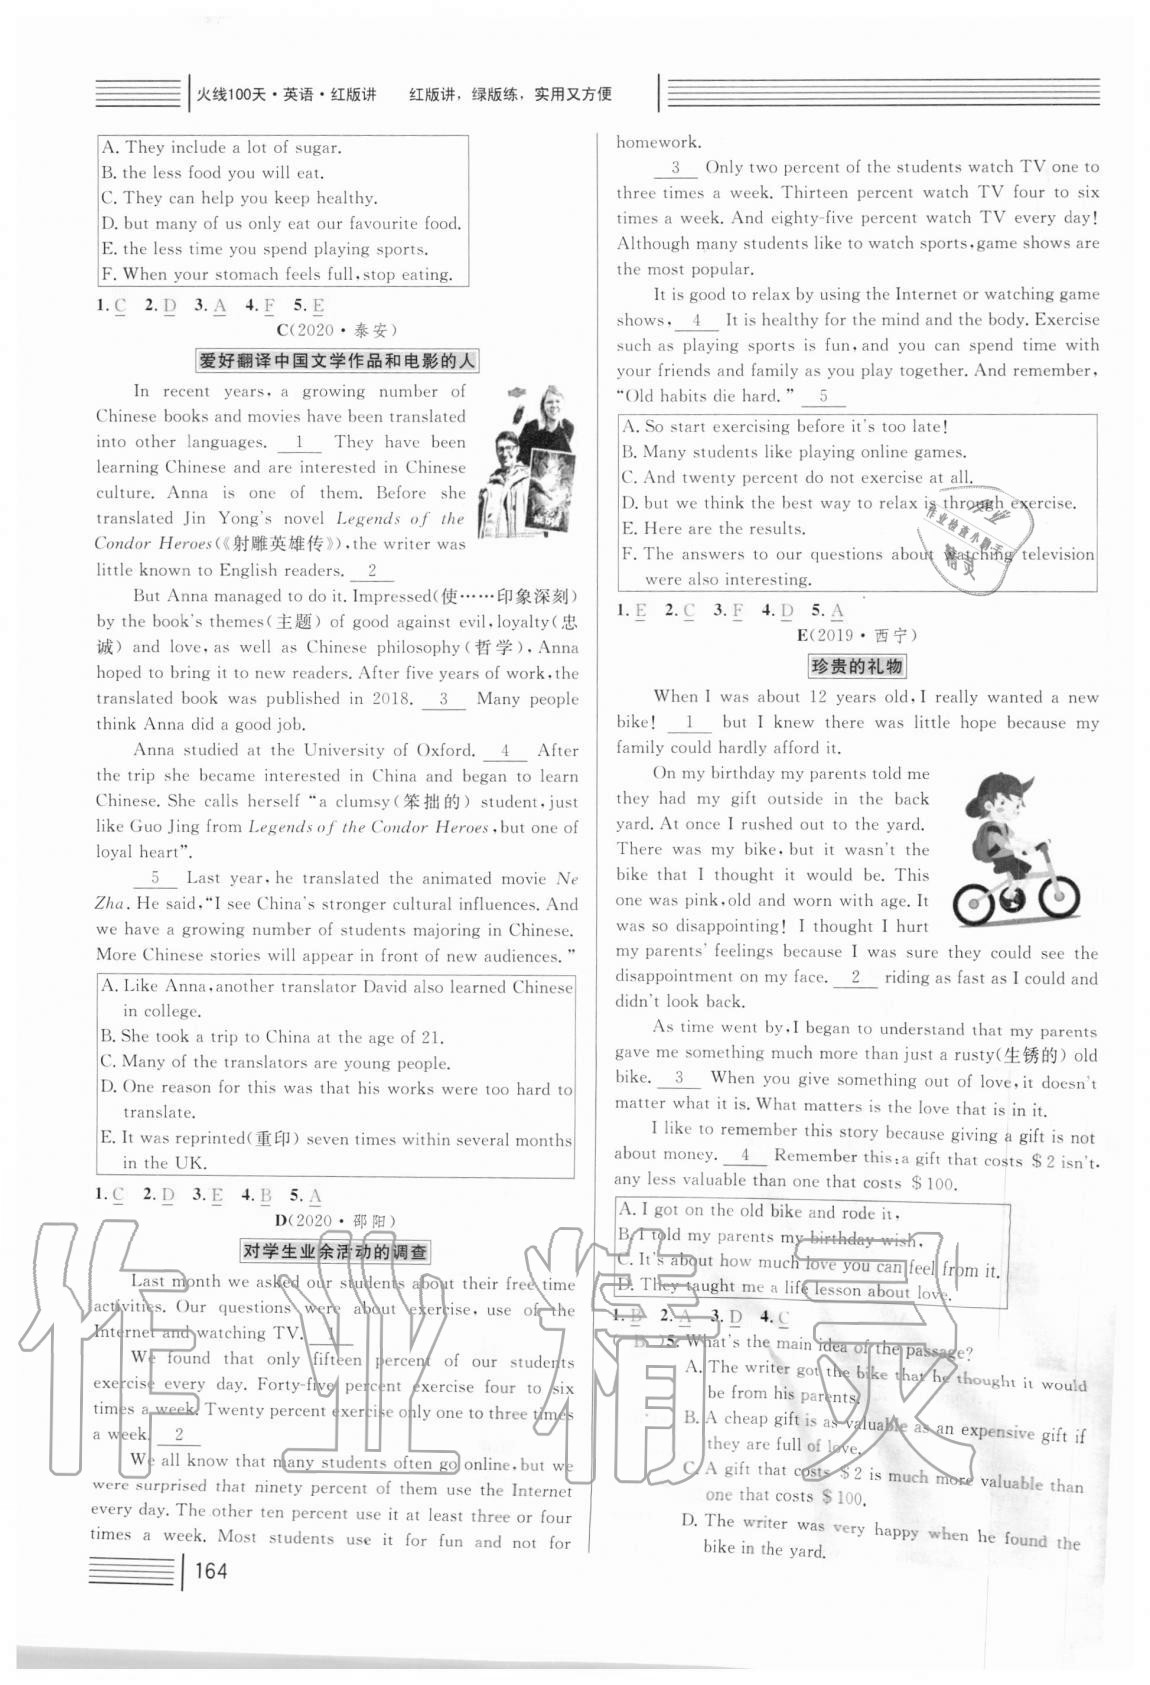 火线100天·英语·红版讲 红版讲，绿版练，实用又方便
A. They include a lot of sugar.
B. the less food you will eat.
C. They can help you keep healthy.
D. but many of us only eat our favourite food.
E. the less time you spend playing sports.
F. When your stomach feels full, stop eating.
1. C 2. D 3. A 4. F 5. E
C(2020·泰安)
爱好翻译中国文学作品和电影的人
In recent years, a growing number of
Chinese books and movies have been translated
into other languages. 1 They have been
learning Chinese and are interested in Chinese
culture. Anna is one of them. Before she
translated Jin Yong's novel Legends of the
Condor Heroes(《射雕英雄传》), the writer was
little known to English readers. 2
But Anna managed to do it. Impressed(使……印象深刻)
by the book's themes(主题) of good against evil, loyalty(忠
诚) and love, as well as Chinese philosophy(哲学), Anna
hoped to bring it to new readers. After five years of work, the
translated book was published in 2018. 3 Many people
think Anna did a good job.
Anna studied at the University of Oxford. 4 After
the trip she became interested in China and began to learn
Chinese. She calls herself “a clumsy(笨拙的) student, just
like Guo Jing from Legends of the Condor Heroes, but one of
loyal heart”.
5 Last year, he translated the animated movie Ne
Zha. He said, “I see China's stronger cultural influences. And
we have a growing number of students majoring in Chinese.
More Chinese stories will appear in front of new audiences.”
A. Like Anna, another translator David also learned Chinese
in college.
B. She took a trip to China at the age of 21.
C. Many of the translators are young people.
D. One reason for this was that his works were too hard to
translate.
E. It was reprinted(重印) seven times within several months
in the UK.
1. C 2. D 3. E 4. B 5. A
D(2020·邵阳)
对学生业余活动的调查
Last month we asked our students about their free time
activities. Our questions were about exercise, use of the
Internet and watching TV. 1
We found that only fifteen percent of our students
exercise every day. Forty-five percent exercise four to six
times a week. Twenty percent exercise only one to three times
a week. 2
We all know that many students often go online, but we
were surprised that ninety percent of them use the Internet
every day. The other ten percent use it at least three or four
times a week. Most students use it for fun and not for
homework.
3 Only two percent of the students watch TV one to
three times a week. Thirteen percent watch TV four to six
times a week. And eighty-five percent watch TV every day!
Although many students like to watch sports, game shows are
the most popular.
It is good to relax by using the Internet or watching game
shows, 4 It is healthy for the mind and the body. Exercise
such as playing sports is fun, and you can spend time with
your friends and family as you play together. And remember,
“Old habits die hard.” 5
A. So start exercising before it's too late!
B. Many students like playing online games.
C. And twenty percent do not exercise at all.
D. but we think the best way to relax is through exercise.
E. Here are the results.
F. The answers to our questions about watching television
were also interesting.
1. E 2. C 3. F 4. D 5. A
E(2019·西宁)
珍贵的礼物
When I was about 12 years old, I really wanted a new
bike! 1 but I knew there was little hope because my
family could hardly afford it.
On my birthday my parents told me
they had my gift outside in the back
yard. At once I rushed out to the yard.
There was my bike, but it wasn't the
bike that I thought it would be. This
one was pink, old and worn with age. It
was so disappointing! I thought I hurt
my parents' feelings because I was sure they could see the
disappointment on my face. 2 riding as fast as I could and
didn't look back.
As time went by, I began to understand that my parents
gave me something much more than just a rusty(生锈的) old
bike. 3 When you give something out of love, it doesn't
matter what it is. What matters is the love that is in it.
I like to remember this story because giving a gift is not
about money. 4 Remember this: a gift that costs $2 isn't
any less valuable than one that costs $100.
A. I got on the old bike and rode it,
B. I told my parents my birthday wish,
C. It's about how much love you can feel from it.
D. They taught me a life lesson about love.
1. B 2. A 3. D 4. C
( B )5. What's the main idea of the passage?
A. The writer got the bike that he thought it would
be from his parents.
B. A cheap gift is as valuable as an expensive gift if
they are full of love.
C. A gift that costs $2 is much more valuable than
one that costs $100.
D. The writer was very happy when he found the
bike in the yard.
164
作业精灵
作业检查小助手
精灵